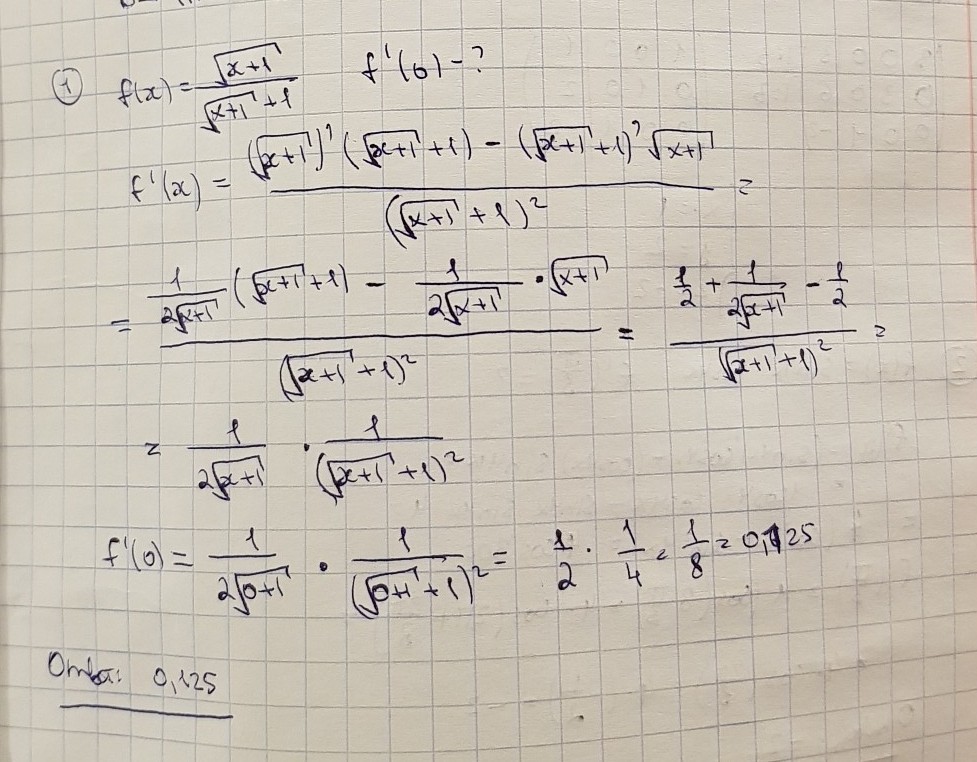 ① f(x) = √(x+1) / (√(x+1) + 1) f'(0) - ?
f'(x) = ((√(x+1))' (√(x+1) + 1) - (√(x+1) + 1)' √(x+1)) / (√(x+1) + 1)² =
= (1/(2√(x+1)) (√(x+1) + 1) - 1/(2√(x+1)) · √(x+1)) / (√(x+1) + 1)² = (1/2 + 1/(2√(x+1)) - 1/2) / (√(x+1) + 1)² =
= 1/(2√(x+1)) · 1/(√(x+1) + 1)²
f'(0) = 1/(2√(0+1)) · 1/(√(0+1) + 1)² = 1/2 · 1/4 = 1/8 = 0,125
0,125